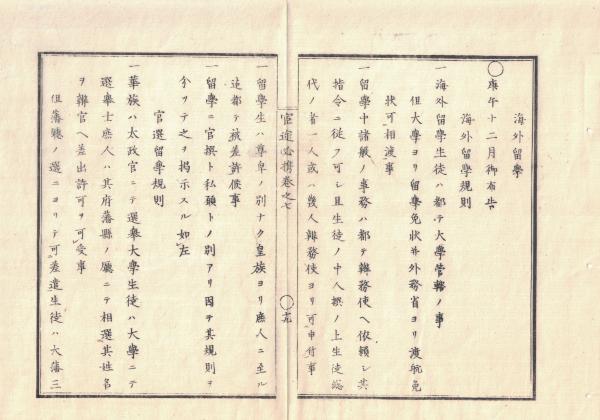 海外留學
〇庚午十二月御布告
海外留學規則
一海外留學生徒ハ都テ大學管轄ノ事
但大學ヨリ留學免狀幷外務省ヨリ渡航免
狀可相渡事
一留學中諸般ノ事務ハ都テ辨務使ヘ依賴シ其
指令ニ從フ可シ且生徒ノ中人撰ノ上生徒總
代ノ者一人或ハ幾人辨務使ヨリ可申付事
官途必携卷之七
〇十九
一留學生ハ尊卑ノ別ナク皇族ヨリ庶人ニ至ル
迄都テ被差許候事
一留學ニ官撰ト私願トノ別アリ因テ其規則ヲ
分リテ之ヲ揭示スル如左
官選留學規則
一華族ハ太政官ニテ選擧大學生徒ハ大學ニテ
選擧士庶人ハ其府藩縣ノ廳ニテ相選其姓名
ヲ辨官ヘ差出許可ヲ可受事
但藩縣ノ選ニヨリテ可差遣生徒ハ大藩三